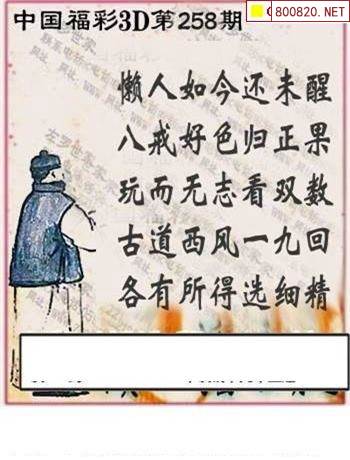 800820.NET
中国福彩3D第258期
懒人如今还未醒
八戒好色归正果
玩而无志看双数
古道西风一九回
各有所得选细精